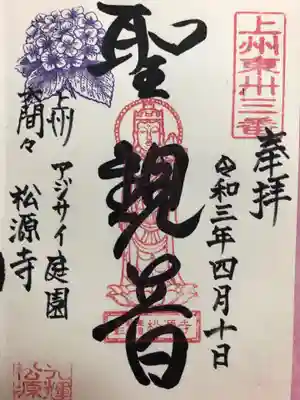 上州東卅三番
奉拝
令和三年四月十日
聖観音
松源寺
上州
大間々
アジサイ庭園
松源寺